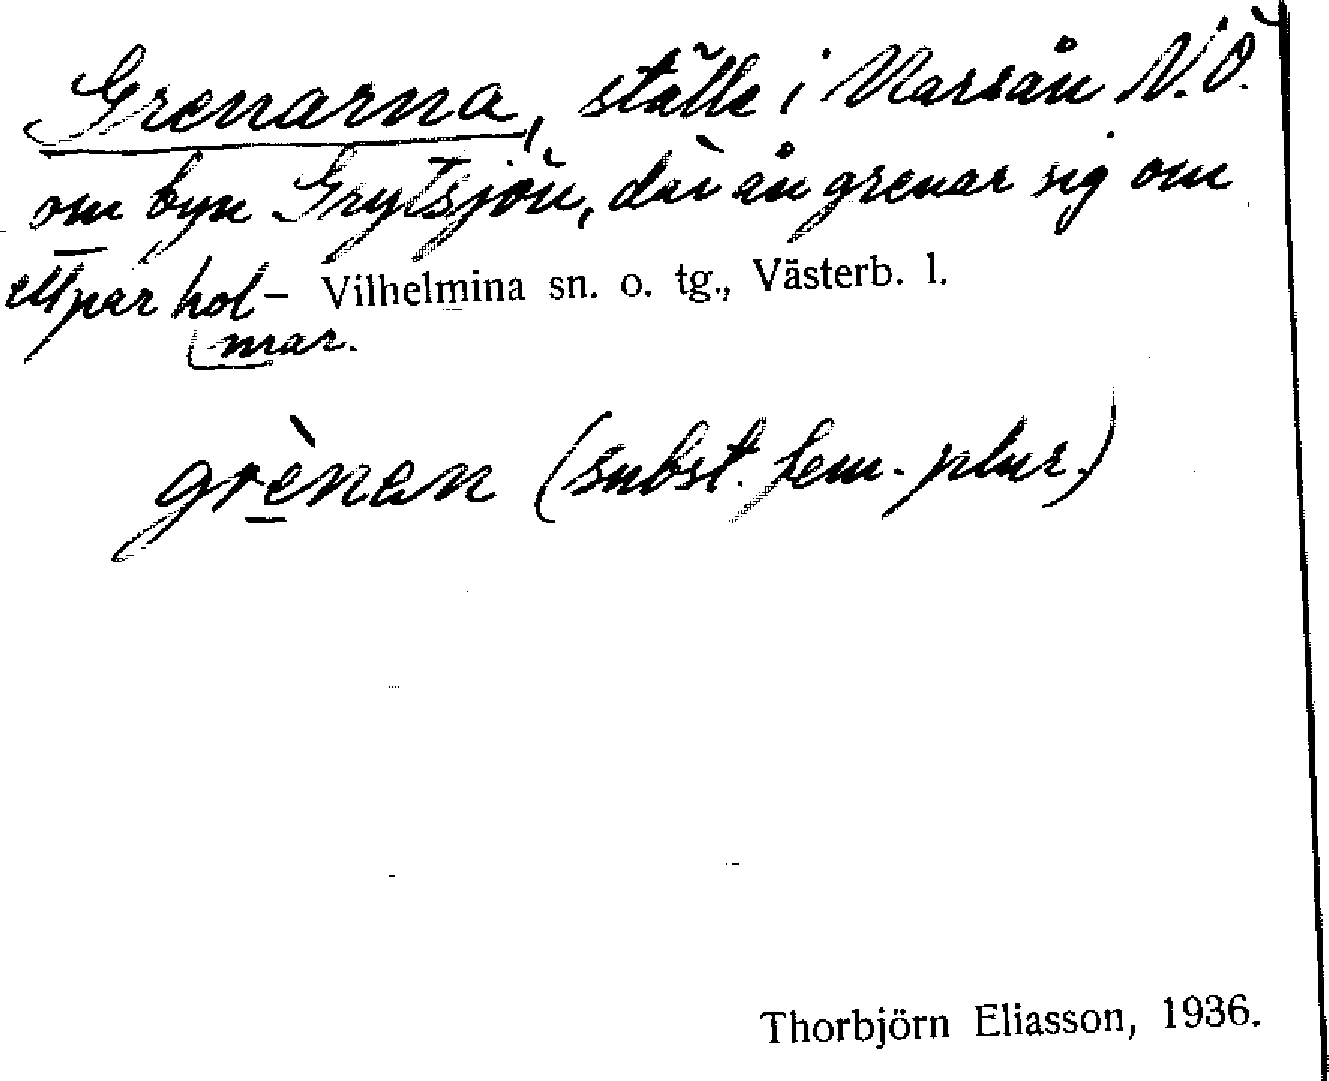 Grenarna, ställe i Marsån N.Ö.
om byn Grytsjön, där ån grenar sig om
ett par hol- Vilhelmina sn. o. tg., Västerb. l.
mar.
grènan (subst. fem. plur.)
Thorbjörn Eliasson, 1936.